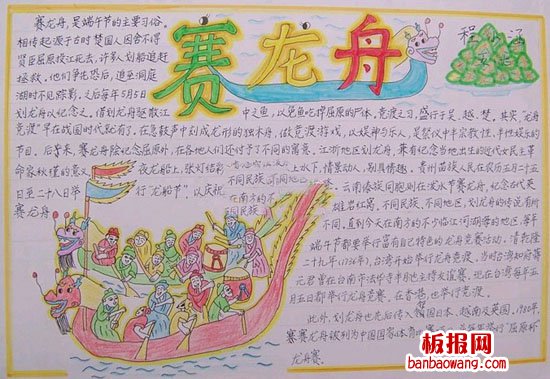 赛龙舟
程 涵
赛龙舟,是端午节的主要习俗。
相传起源于古时楚国人因舍不得
贤臣屈原投江死去,许多人划船追赶
拯救。他们争先恐后,追至洞庭
湖时不见踪影,之后每年5月5日
划龙舟以纪念之。借划龙舟驱散江
中之鱼,以免鱼吃掉屈原的尸体。竞渡之习,盛行于吴、越、楚。其实,"龙舟
竞渡"早在战国时代就有了。在急鼓声中划成龙形的独木舟,做竞渡游戏,以娱神与乐人,是祭仪中半宗教性、半娱乐的
节目。后来,赛龙舟除纪念屈原外,在各地人们还付予了不同的寓意。江浙地区划龙舟,兼有纪念当地出生的近代女民主革
命家秋瑾的意义。夜龙船上,张灯结彩,上水下,情景动人,别具情趣。贵州苗族人民在农历五月二十五
日至二十八举行"龙船节",以庆祝
云南傣族同胞则在泼水节赛龙舟,纪念古代英
雄岩红窝。不同民族、不同地区,划龙舟的传说有所
不同。直到今天在南方的不少临江河湖海的地区,每年
端午节都要举行富有自己特色的龙舟竞赛活动。清乾隆
二十九年(1736年),台湾开始举行龙舟竞渡。当时台湾知府蒋
元君曾在台南市法华寺半月池主持友谊赛。现在台湾每年五
月五日都举行龙舟竞赛。在香港,也举行竞渡。
此外,划龙舟也先后传入邻国日本、越南及英国。1980年,
赛龙舟被列为中国国家体育比赛,每年举行"屈原杯"
龙舟赛。
赛龙舟
不同民族
在南方的不
不同民族
板报网
www.banbaowang.com